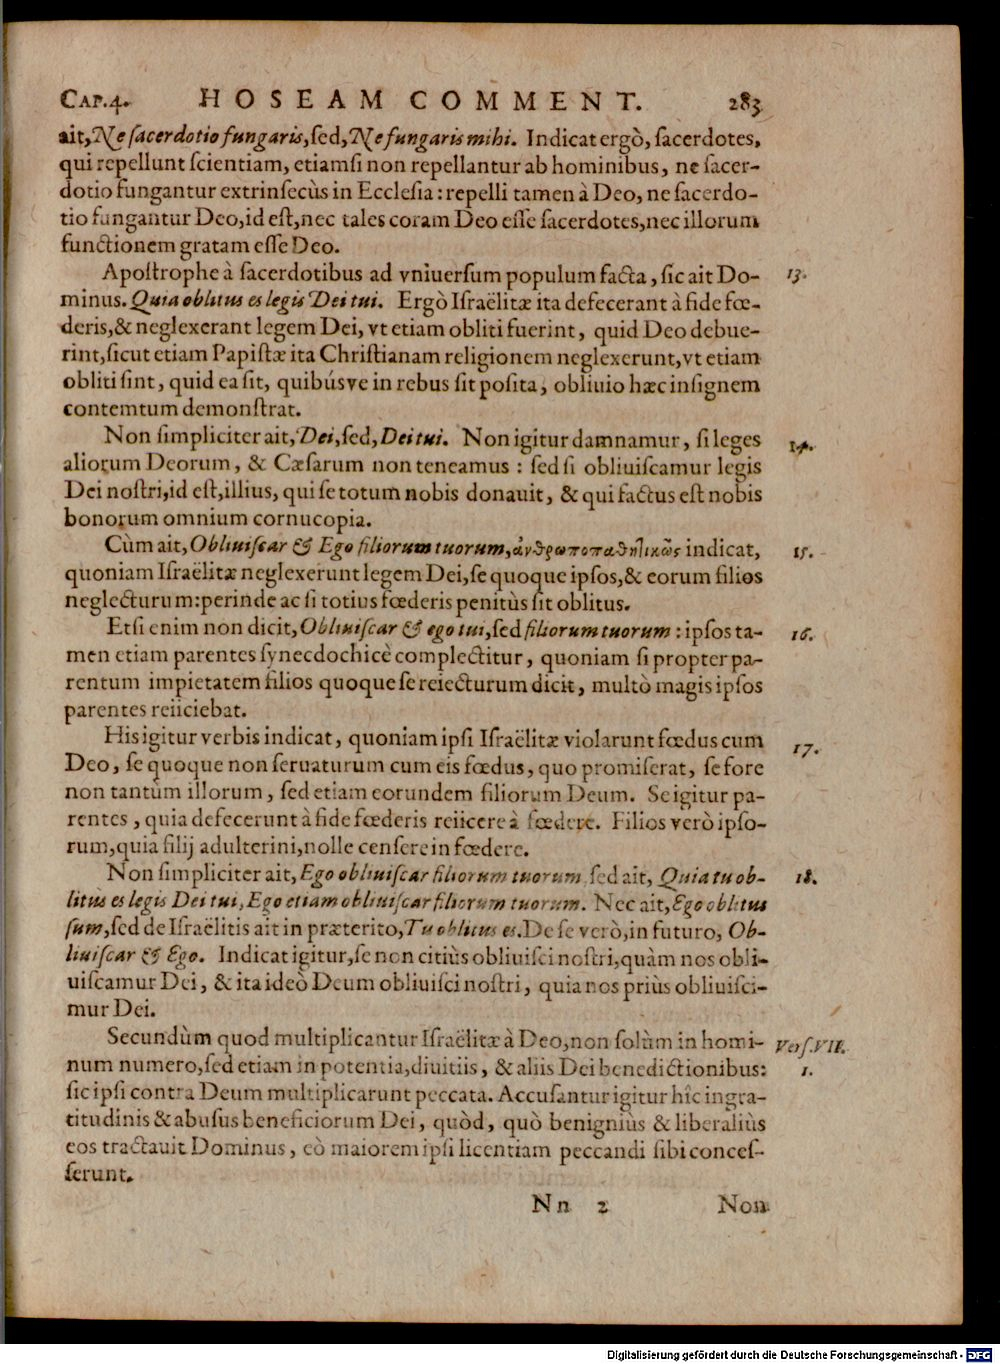 CAP. 4. HOSEAM COMMENT. 283
ait, Ne sacerdotio fungaris, sed, Ne fungaris mihi. Indicat ergò, sacerdotes,
qui repellunt scientiam, etiamsi non repellantur ab hominibus, ne sacer-
dotio fungantur extrinsecùs in Ecclesia: repelli tamen à Deo, ne sacerdo-
tio fungantur Deo, id est, nec tales coram Deo esse sacerdotes, nec illorum
functionem gratam esse Deo.
Apostrophe à sacerdotibus ad vniuersum populum facta, sic ait Do- 13.
minus. Quia oblitus es legis Dei tui. Ergò Israëlitæ ita defecerant à fide fœ-
deris, & neglexerant legem Dei, vt etiam obliti fuerint, quid Deo debue-
rint, sicut etiam Papistæ ita Christianam religionem neglexerunt, vt etiam
obliti sint, quid ea sit, quibúsve in rebus sit posita, obliuio hæc insignem
contemtum demonstrat.
Non simpliciter ait, Dei, sed, Dei tui. Non igitur damnamur, si leges 14.
aliorum Deorum, & Cæsarum non teneamus: sed si obliuiscamur legis
Dei nostri, id est, illius, qui se totum nobis donauit, & qui factus est nobis
bonorum omnium cornucopia.
Cùm ait, Obliuiscar & Ego filiorum tuorum, ἀνθρωποπαθητικῶς indicat, 15.
quoniam Israëlitæ neglexerunt legem Dei, se quoque ipsos, & eorum filios
neglecturum: perinde ac si totius fœderis penitùs sit oblitus.
Etsi enim non dicit, Obliuiscar & ego tui, sed filiorum tuorum: ipsos ta- 16.
men etiam parentes synecdochicè complectitur, quoniam si propter pa-
rentum impietatem filios quoque se reiecturum dicit, multò magis ipsos
parentes reiiciebat.
His igitur verbis indicat, quoniam ipsi Israëlitæ violarunt fœdus cum 17.
Deo, se quoque non seruaturum cum eis fœdus, quo promiserat, se fore
non tantùm illorum, sed etiam eorundem filiorum Deum. Se igitur pa-
rentes, quia defecerunt à fide fœderis reiicere à fœdere. Filios verò ipso-
rum, quia filij adulterini, nolle censere in fœdere.
Non simpliciter ait, Ego obliuiscar filiorum tuorum, sed ait, Quia tu ob- 18.
litus es legis Dei tui, Ego etiam obliuiscar filiorum tuorum. Nec ait, Ego oblitus
sum, sed de Israëlitis ait in præterito, Tu oblitus es. De se verò, in futuro, Ob-
liuiscar & Ego. Indicat igitur, se non citiùs obliuisci nostri, quàm nos obli-
uiscamur Dei, & ita ideò Deum obliuisci nostri, quia nos priùs obliuisci-
mur Dei.
Secundùm quod multiplicantur Israëlitæ à Deo, non solùm in homi- Vers. VII.
num numero, sed etiam in potentia, diuitiis, & aliis Dei benedictionibus: 1.
sic ipsi contra Deum multiplicarunt peccata. Accusantur igitur hîc ingra-
titudinis & abusus beneficiorum Dei, quòd, quò benigniùs & liberaliùs
eos tractauit Dominus, eò maiorem ipsi licentiam peccandi sibi conces-
serunt.
Nn 2 Non
Digitalisierung gefördert durch die Deutsche Forschungsgemeinschaft - DFG